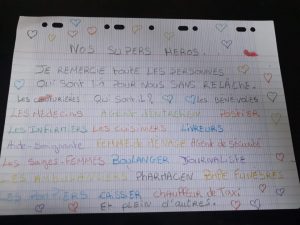 NOS SUPERS HEROS.
JE REMERCIE TOUTE LES PERSONNES
QUI SONT LÀ POUR NOUS SANS RELÂCHE.
LES QUI SONT LÀ LES BENEVOLES
LES MÉDECINS AGENT D'ENTRETIEN POSTIER
LES INFIRMIERS LES CUISINIERS LIVREURS
Aide-Soignante FEMME DE MENAGE Agent de Sécurité
LES SAGES-FEMMES BOULANGER JOURNALISTE
LES AMBULANCIERS PHARMACIEN POMPE FUNEBRES
LES POMPIERS CAISSIER chauffeur de Taxi
Et plein d'autres.